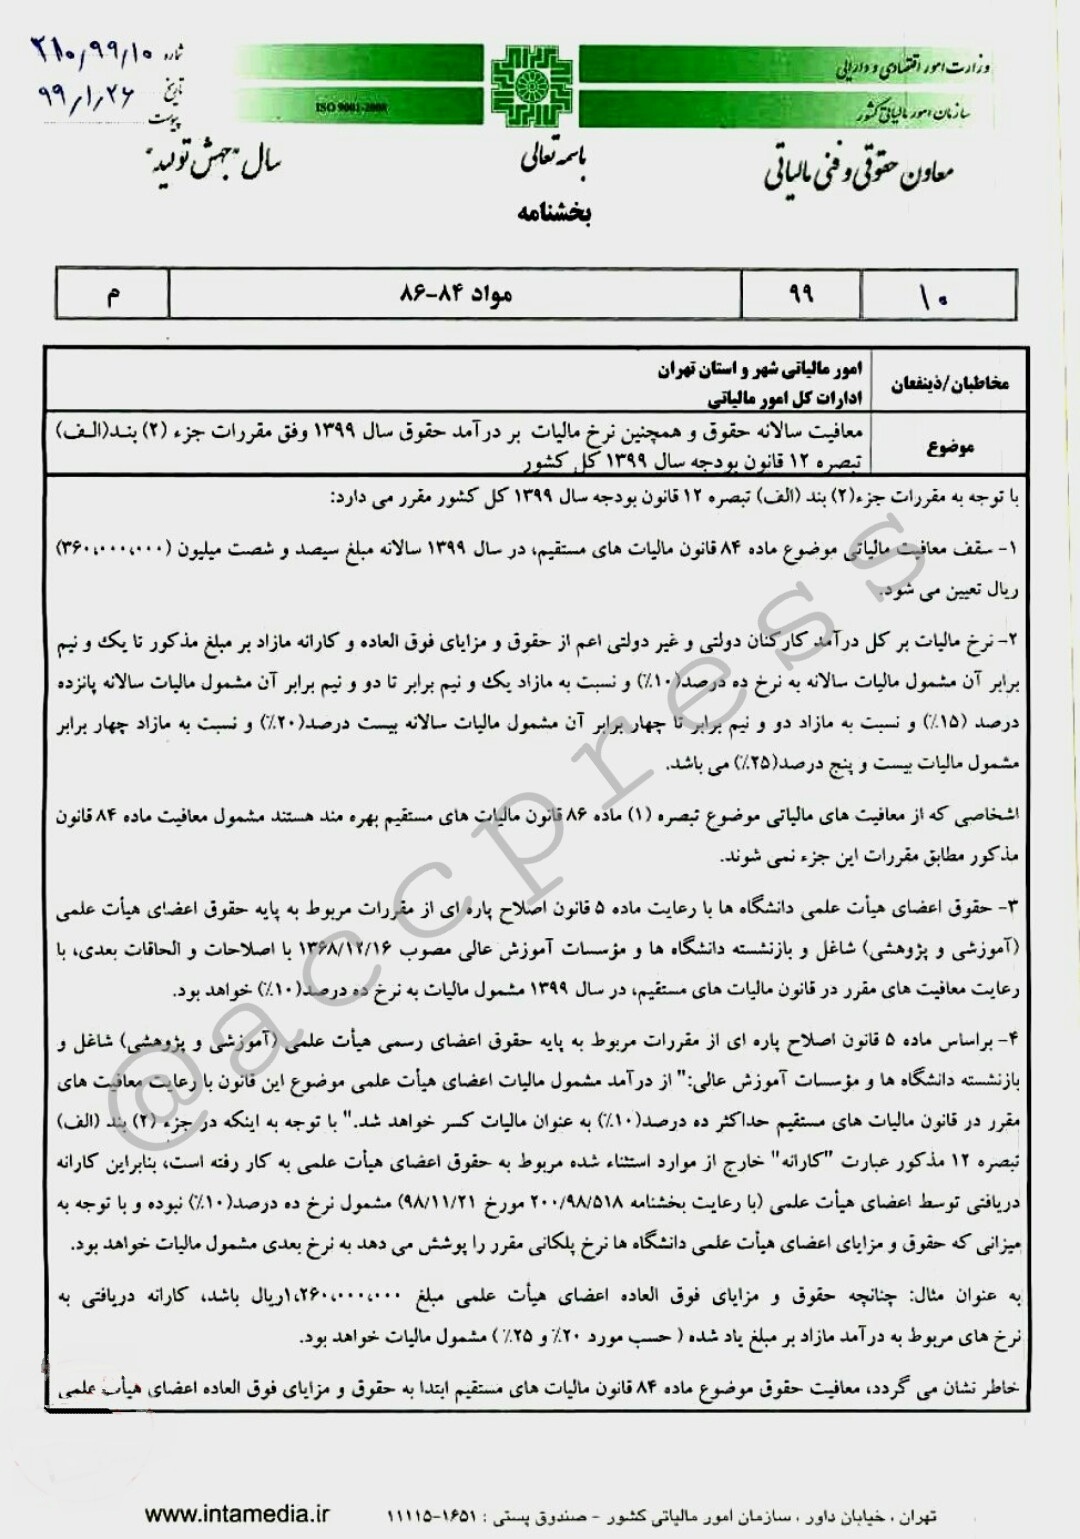 وزارت امور اقتصادی و دارایی
سازمان امور مالیاتی کشور
ISO 9001-2008
شماره ۲۱۰/۹۹/۱۰
تاریخ ۹۹/۱/۲۶
پیوست
معاون حقوقی و فنی مالیاتی
باسمه تعالی
سال "جهش تولید"
بخشنامه
۱۰ ۹۹ مواد ۸۴-۸۶ م
مخاطبان/ذینفعان
امور مالیاتی شهر و استان تهران
ادارات کل امور مالیاتی
موضوع
معافیت سالانه حقوق و همچنین نرخ مالیات بر درآمد حقوق سال ۱۳۹۹ وفق مقررات جزء (۲) بند(الف)
تبصره ۱۲ قانون بودجه سال ۱۳۹۹ کل کشور
با توجه به مقررات جزء(۲) بند (الف) تبصره ۱۲ قانون بودجه سال ۱۳۹۹ کل کشور مقرر می دارد:
۱- سقف معافیت مالیاتی موضوع ماده ۸۴ قانون مالیات های مستقیم، در سال ۱۳۹۹ سالانه مبلغ سیصد و شصت میلیون (۳۶۰،۰۰۰،۰۰۰)
ریال تعیین می شود.
۲- نرخ مالیات بر کل درآمد کارکنان دولتی و غیر دولتی اعم از حقوق و مزایای فوق العاده و کارانه مازاد بر مبلغ مذکور تا یک و نیم
برابر آن مشمول مالیات سالانه به نرخ ده درصد(۱۰٪) و نسبت به مازاد یک و نیم برابر تا دو و نیم برابر آن مشمول مالیات سالانه پانزده
درصد (۱۵٪) و نسبت به مازاد دو و نیم برابر تا چهار برابر آن مشمول مالیات سالانه بیست درصد(۲۰٪) و نسبت به مازاد چهار برابر
مشمول مالیات بیست و پنج درصد(۲۵٪) می باشد.
اشخاصی که از معافیت های مالیاتی موضوع تبصره (۱) ماده ۸۶ قانون مالیات های مستقیم بهره مند هستند مشمول معافیت ماده ۸۴ قانون
مذکور مطابق مقررات این جزء نمی شوند.
۳- حقوق اعضای هیأت علمی دانشگاه ها با رعایت ماده ۵ قانون اصلاح پاره ای از مقررات مربوط به پایه حقوق اعضای هیأت علمی
(آموزشی و پژوهشی) شاغل و بازنشسته دانشگاه ها و مؤسسات آموزش عالی مصوب ۱۳۶۸/۱۲/۱۶ با اصلاحات و الحاقات بعدی، با
رعایت معافیت های مقرر در قانون مالیات های مستقیم، در سال ۱۳۹۹ مشمول مالیات به نرخ ده درصد(۱۰٪) خواهد بود.
۴- براساس ماده ۵ قانون اصلاح پاره ای از مقررات مربوط به پایه حقوق اعضای رسمی هیأت علمی (آموزشی و پژوهشی) شاغل و
بازنشسته دانشگاه ها و مؤسسات آموزش عالی:" از درآمد مشمول مالیات اعضای هیأت علمی موضوع این قانون با رعایت معافیت های
مقرر در قانون مالیات های مستقیم حداکثر ده درصد(۱۰٪) به عنوان مالیات کسر خواهد شد." با توجه به اینکه در جزء (۲) بند (الف)
تبصره ۱۲ مذکور عبارت "کارانه" خارج از موارد استثناء شده مربوط به حقوق اعضای هیأت علمی به کار رفته است، بنابراین کارانه
دریافتی توسط اعضای هیأت علمی (با رعایت بخشنامه ۲۰۰/۹۸/۵۱۸ مورخ ۹۸/۱۱/۲۱) مشمول نرخ ده درصد(۱۰٪) نبوده و با توجه به
میزانی که حقوق و مزایای اعضای هیأت علمی دانشگاه ها نرخ پلکانی مقرر را پوشش می دهد به نرخ بعدی مشمول مالیات خواهد بود.
به عنوان مثال: چنانچه حقوق و مزایای فوق العاده اعضای هیأت علمی مبلغ ۱،۲۶۰،۰۰۰،۰۰۰ریال باشد، کارانه دریافتی به
نرخ های مربوط به درآمد مازاد بر مبلغ یاد شده ( حسب مورد ۲۰٪ و ۲۵٪ ) مشمول مالیات خواهد بود.
خاطر نشان می گردد، معافیت حقوق موضوع ماده ۸۴ قانون مالیات های مستقیم ابتدا به حقوق و مزایای فوق العاده اعضای هیأت علمی
@accpress
تهران ، خیابان داور ، سازمان امور مالیاتی کشور - صندوق پستی : ۱۶۵۱-۱۱۱۱۵
www.intamedia.ir